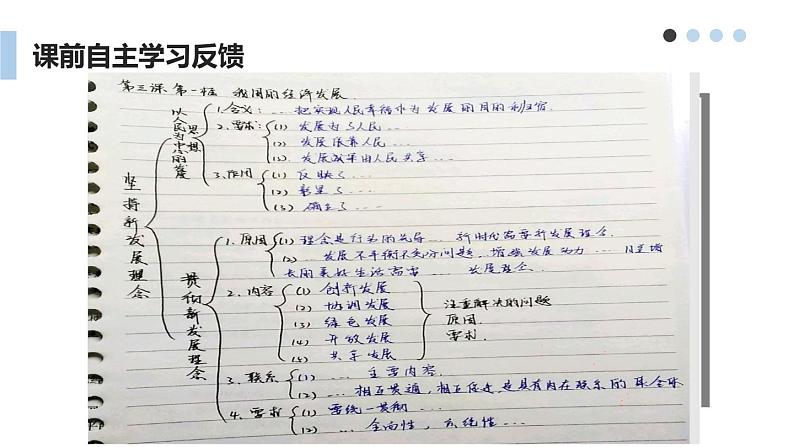 课前自主学习反馈
第三课 第一框 我国的经济发展
坚持新发展理念
以人民为中心的发展思想
1.含义: ... 把实现人民幸福作为发展的目的和归宿.
2.要求: (1) 发展为了人民 ...
(2) 发展依靠人民 ...
(3) 发展成果由人民共享 ...
3.原因 (1) 反映了 ...
(2) 彰显了 ...
(3) 确立了 ...
贯彻新发展理念
1.原因 (1) 理念是行为的先导 ... 新时代需要新发展理念.
(2) ... 发展不平衡不充分问题, 增强发展动力 ... 日益增
长的美好生活需要 ... 发展理念.
2.内容 (1) 创新发展
(2) 协调发展
(3) 绿色发展
(4) 开放发展
(5) 共享发展
注重解决的问题
原因
要求.
3.联系 (1) ... 主要内容.
(2) ... 相互贯通, 相互促进, 是具有内在联系的集合体
4.要求 (1) 要统一贯彻 ...
(2) ... 全面性, 系统性 ...